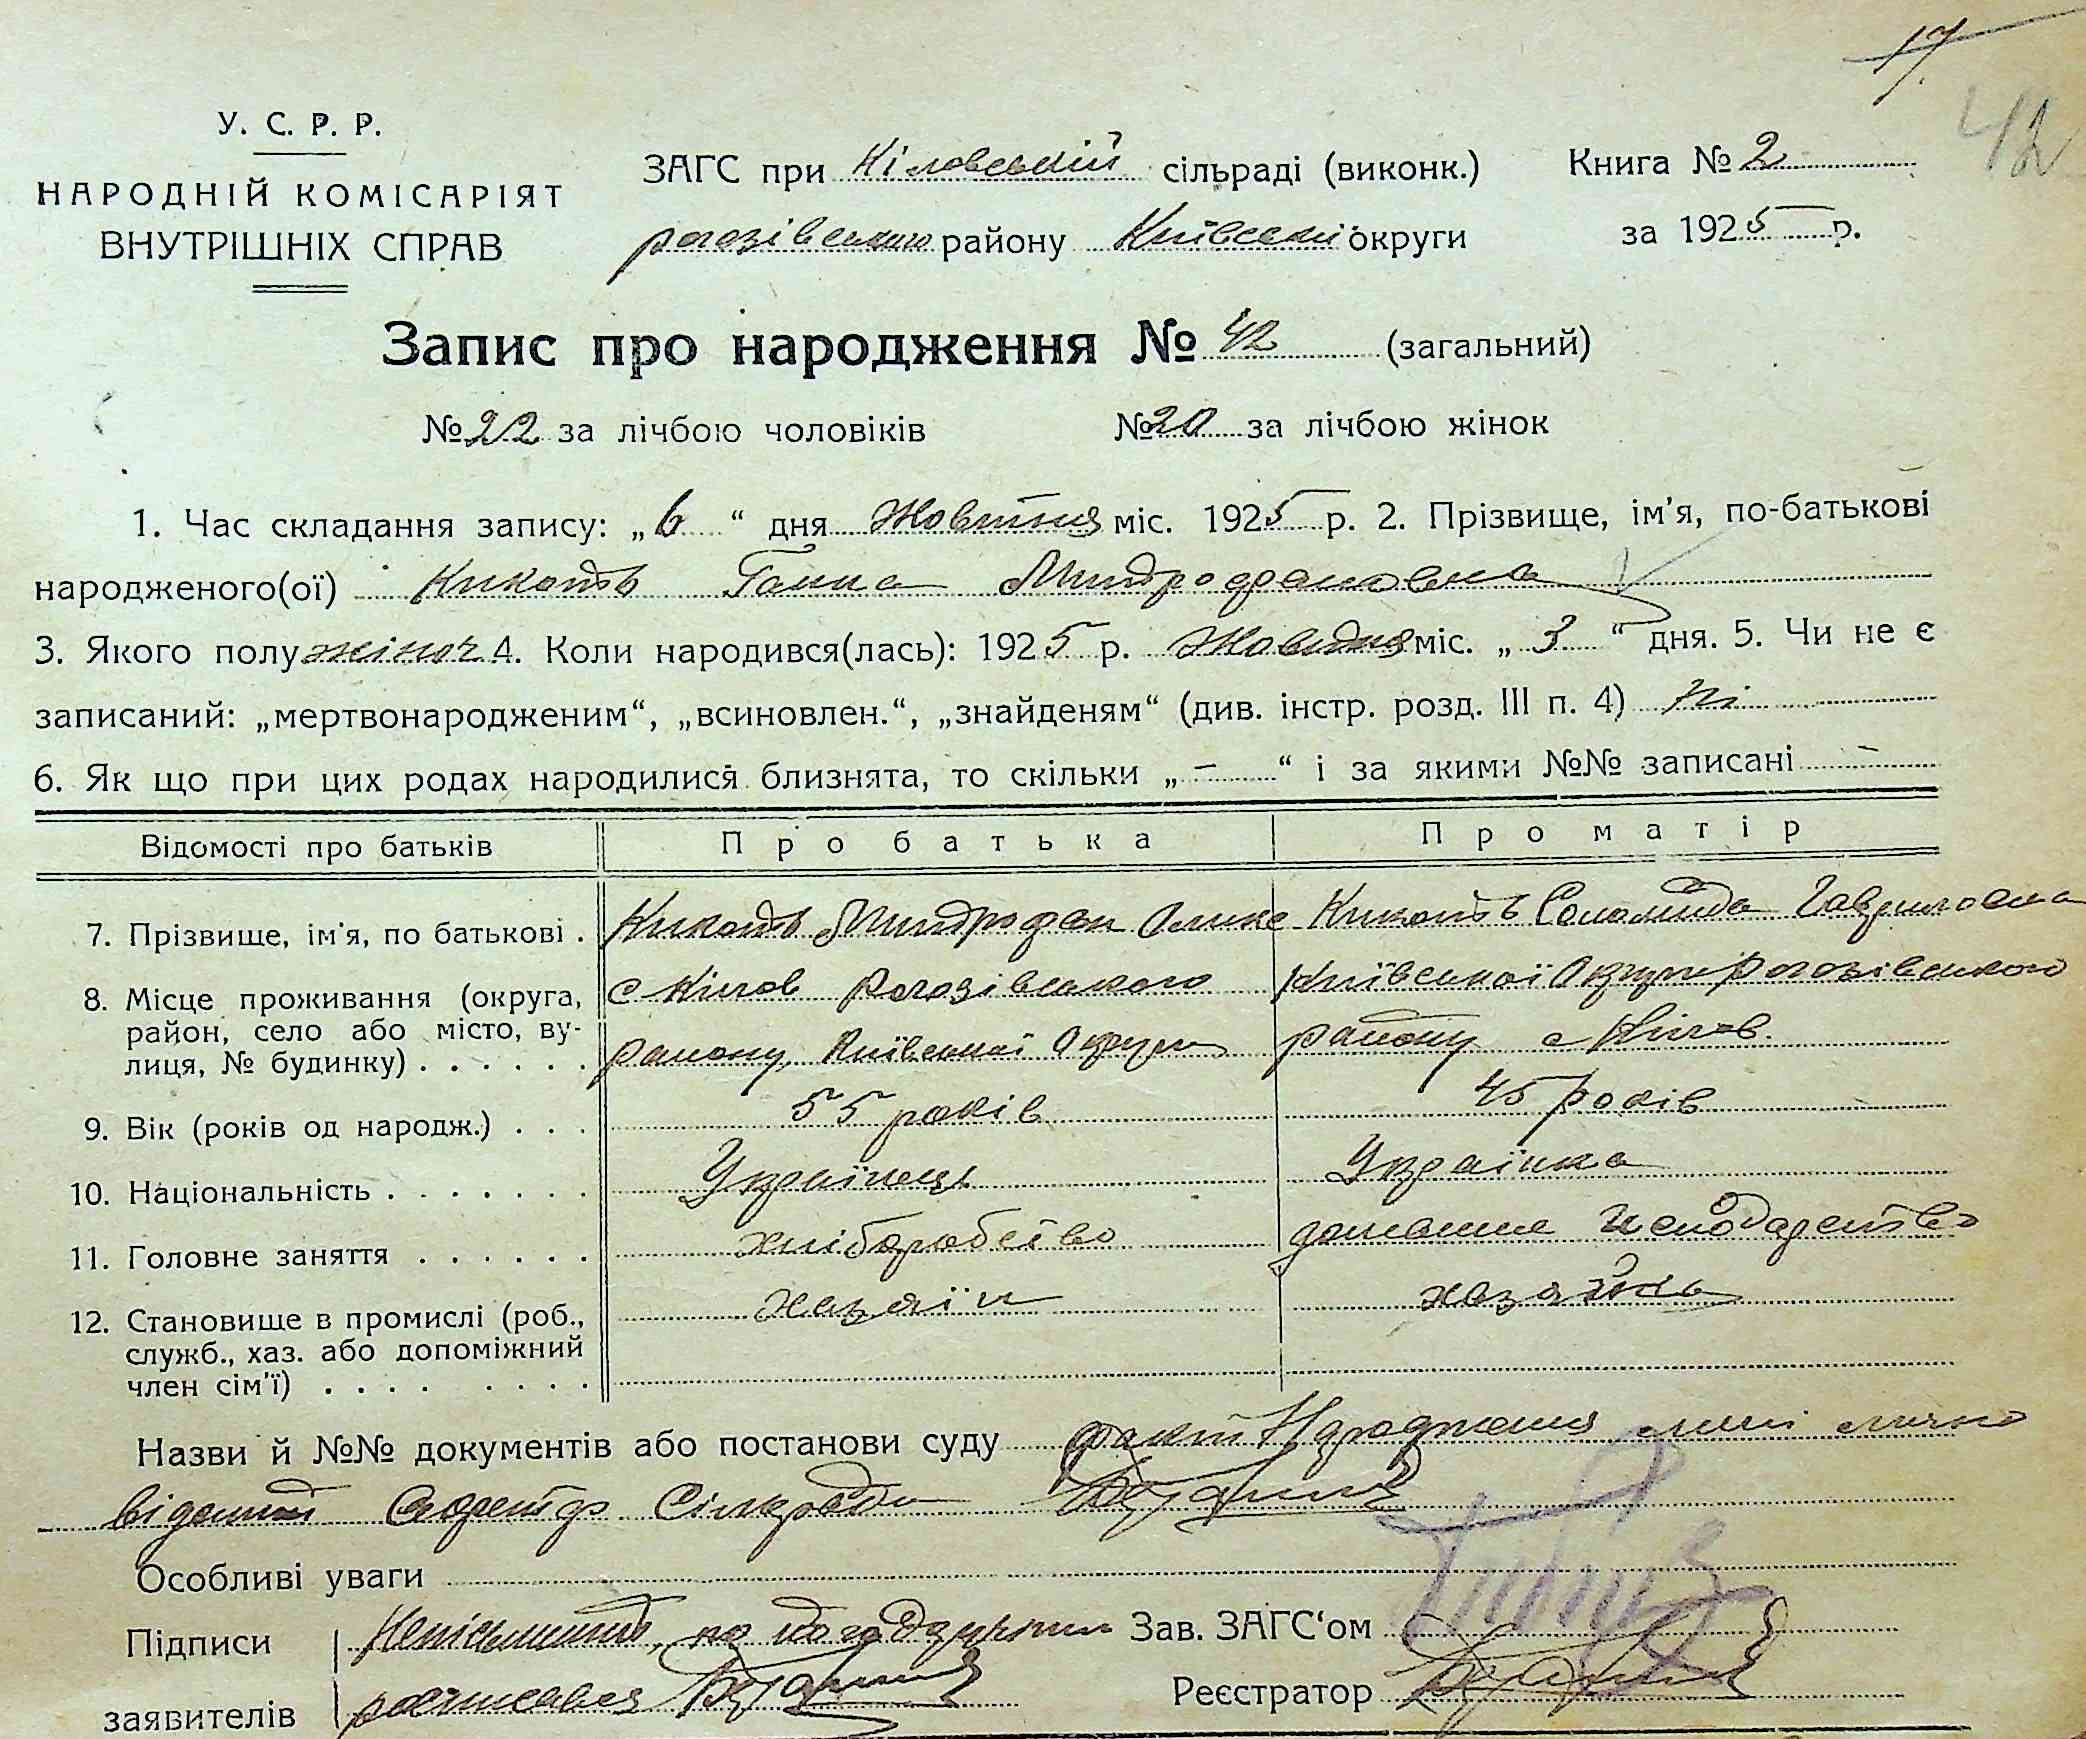 17
42
У. С. Р. Р.
НАРОДНІЙ КОМІСАРІЯТ
ВНУТРІШНІХ СПРАВ
ЗАГС при Кіловській сільраді (виконк.)
рогозівського району Київської округи
Книга № 2
за 1925 р.
Запис про народження № 42 (загальний)
№ 22 за лічбою чоловіків № 20 за лічбою жінок
1. Час складання запису: „6“ дня Жовтня міс. 1925 р. 2. Прізвище, ім'я, по-батькові
народженого(ої) Кикоть Ганна Митрофановна
3. Якого полу жіноч 4. Коли народився(лась): 1925 р. Жовтня міс. „3“ дня. 5. Чи не є
записаний: „мертвонародженим“, „всиновлен.“, „знайденям“ (див. інстр. розд. III п. 4) Ні
6. Як що при цих родах народилися близнята, то скільки „-“ і за якими №№ записані -
Відомості про батьків Про батька Про матір
7. Прізвище, ім'я, по батькові . Кикоть Митрофан Кикоть Соломида Гавриловна
8. Місце проживання (округа, с Кілов Рогозівського Київської Округи Рогозівського
район, село або місто, ву-
лиця, № будинку) . . . . . . району Київської Округи району с Кілов.
9. Вік (років од народж.) . . . 55 років 45 років
10. Національність . . . . . . . Українець Українка
11. Головне заняття . . . . . . хліборобство домашнє господарство
12. Становище в промислі (роб., хазяїн хазяйка
служб., хаз. або допоміжний
член сім'ї) . . . . . . . .
Назви й №№ документів або постанови суду факт Народження мені лично
відомий Секретар Сілкради
Особливі уваги
Підписи Неписьменний, по його дорученню Зав. ЗАГС‘ом
заявителів росписався Реєстратор